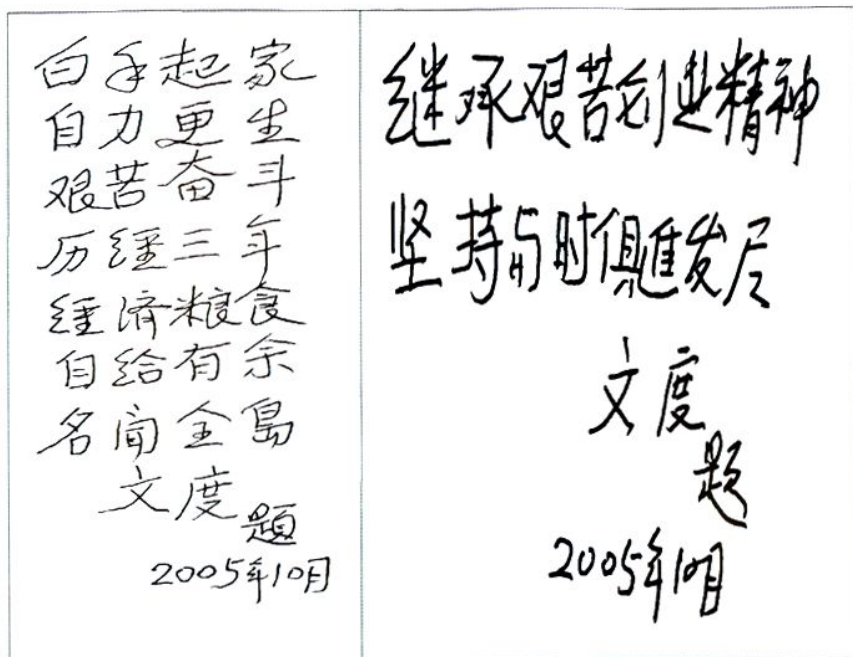 白手起家
自力更生
艰苦奋斗
历经三年
经济粮食
自给有余
名闻全岛
文度
题
2005年10月
继承艰苦创业精神
坚持与时俱进发展
文度
题
2005年10月